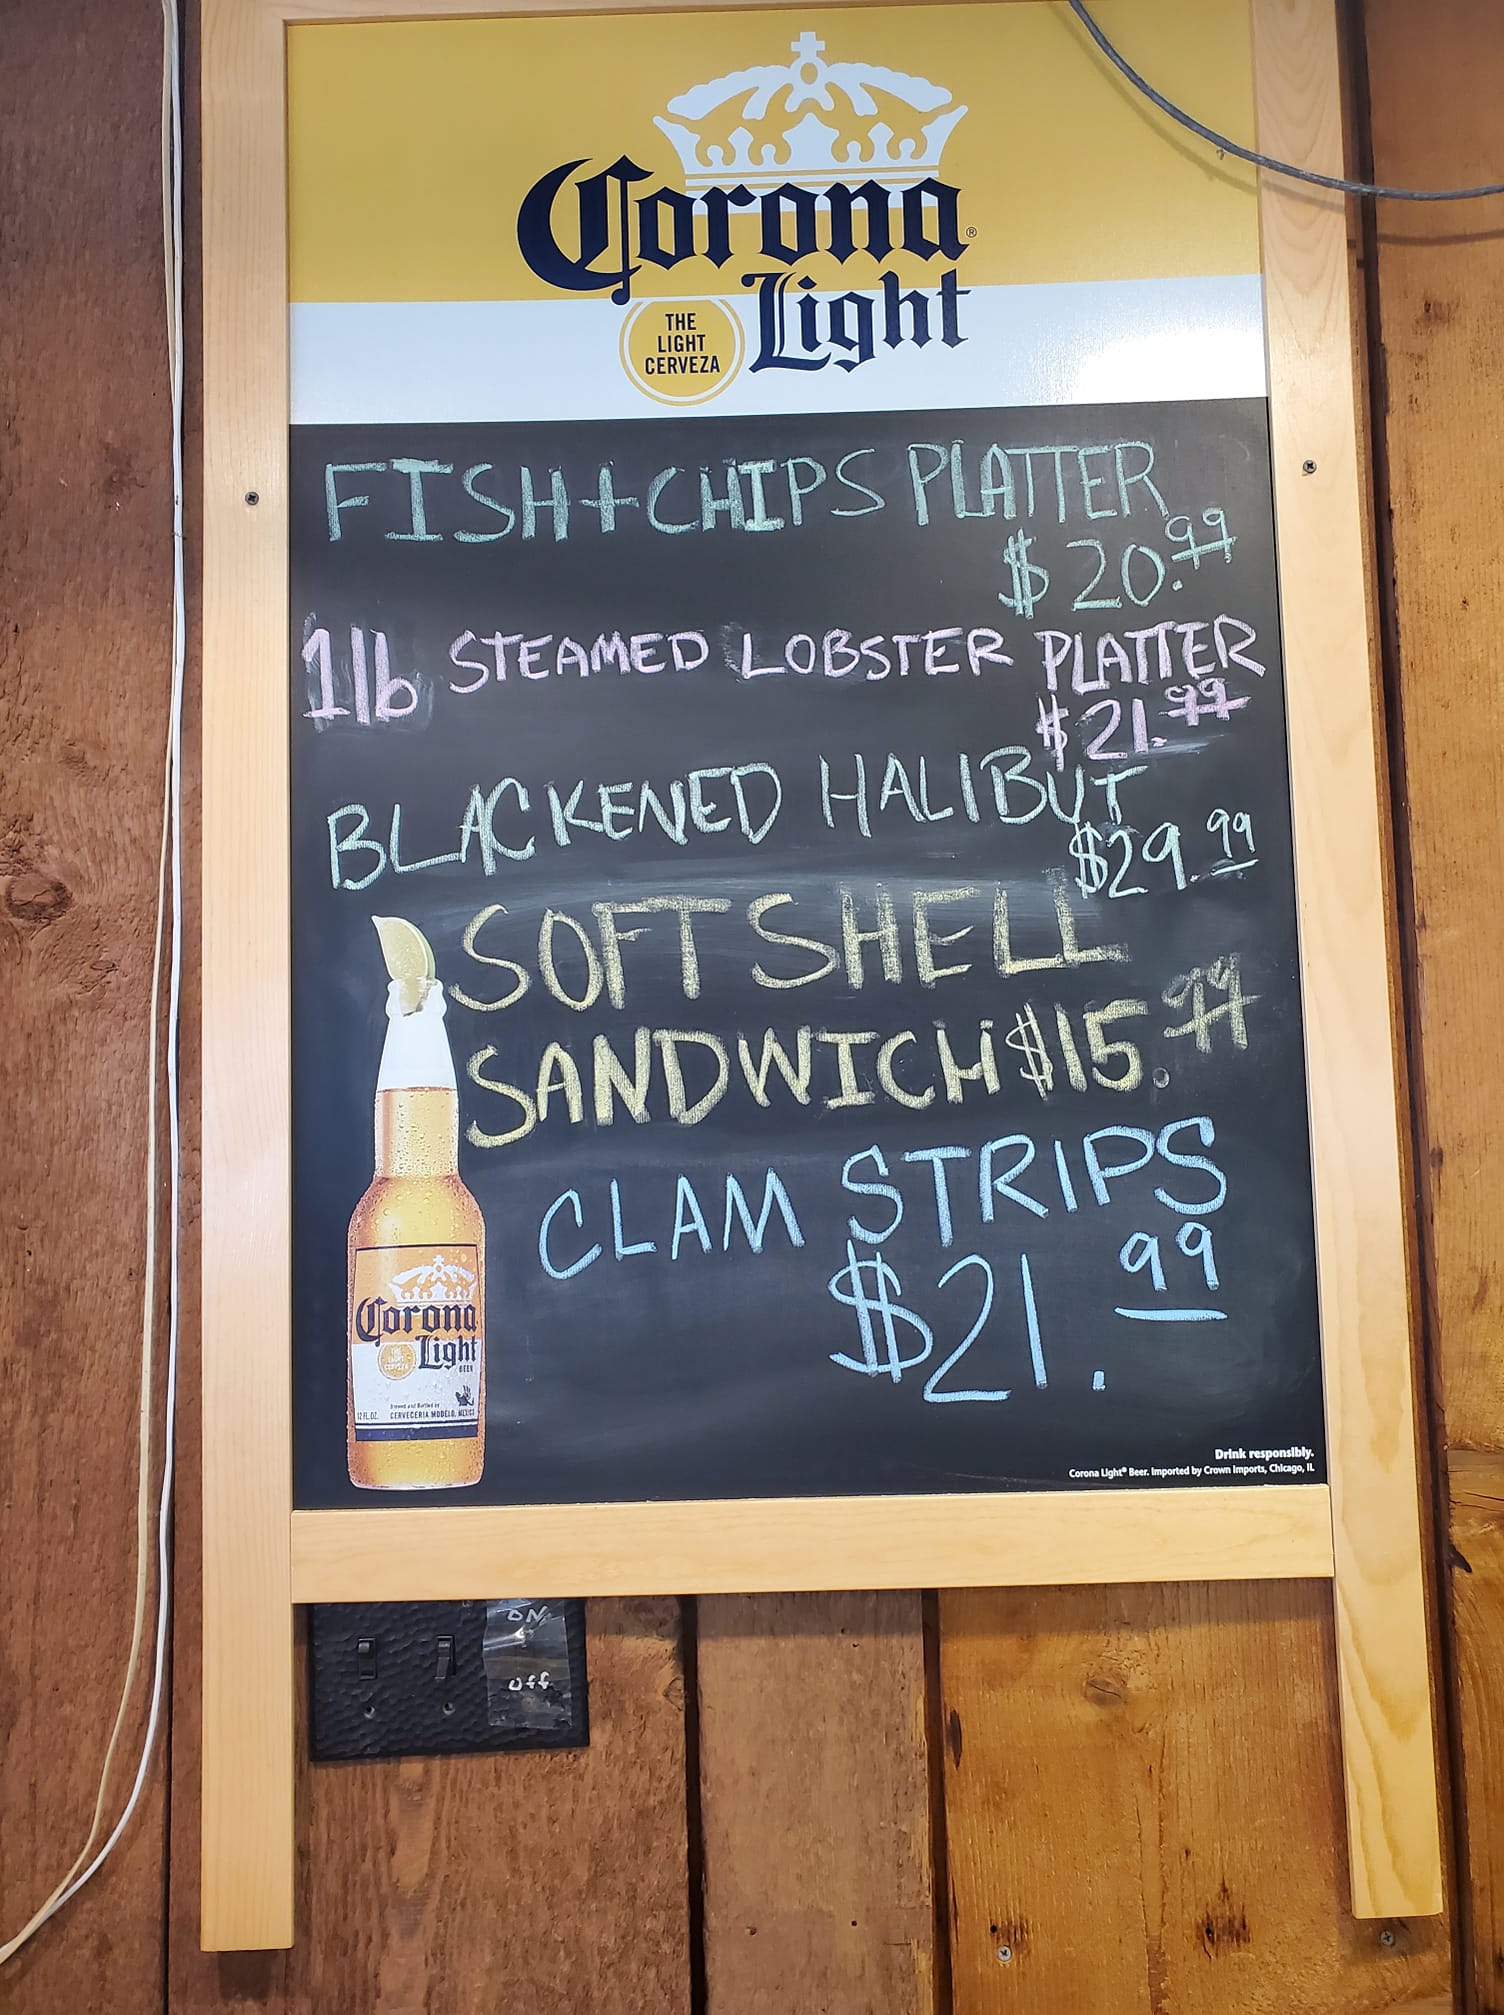 Corona®
Light
THE
LIGHT
CERVEZA
FISH+CHIPS PLATTER
$20.99
1lb STEAMED LOBSTER PLATTER
$21.99
BLACKENED HALIBUT
$29.99
SOFT SHELL
SANDWICH $15.99
CLAM STRIPS
$21.99
Corona
Light
BEER
Brewed and Bottled by
12 FL. OZ. CERVECERIA MODELO, MEXICO
Drink responsibly.
Corona Light® Beer. Imported by Crown Imports, Chicago, IL
ON
Off